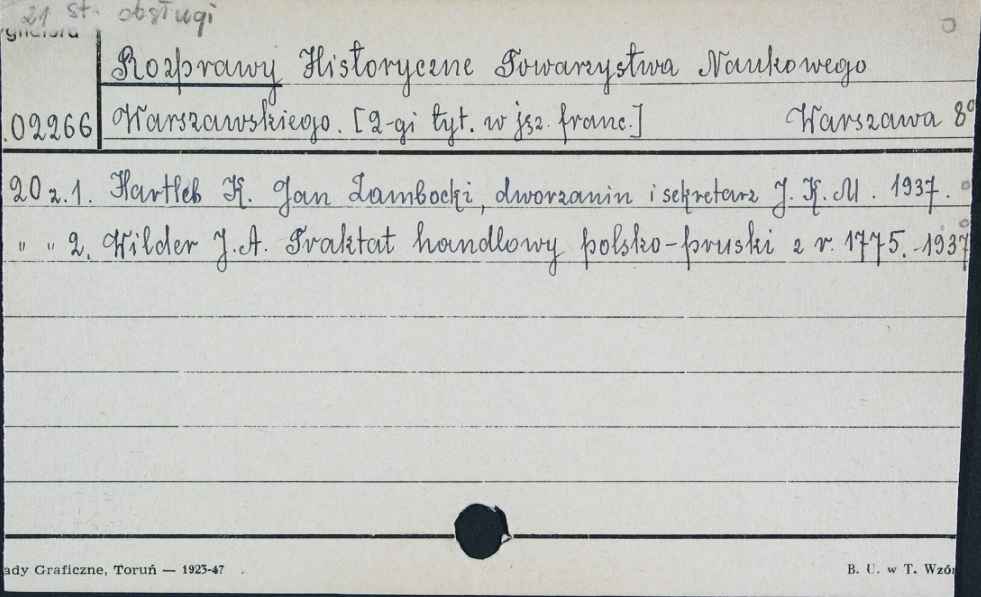 21 st. obsługi
Rozprawy Historyczne Towarzystwa Naukowego
.02266 Warszawskiego. [2-gi tyt. w jęz. franc.] Warszawa 8º
20 z.1. Hartleb K. Jan Zambocki, dworzanin i sekretarz J.K.M. 1937.
" " 2. Wilder J.A. Traktat handlowy polsko-pruski z r. 1775. 1937
ady Graficzne, Toruń — 1923-47 B. U. w T. Wzór